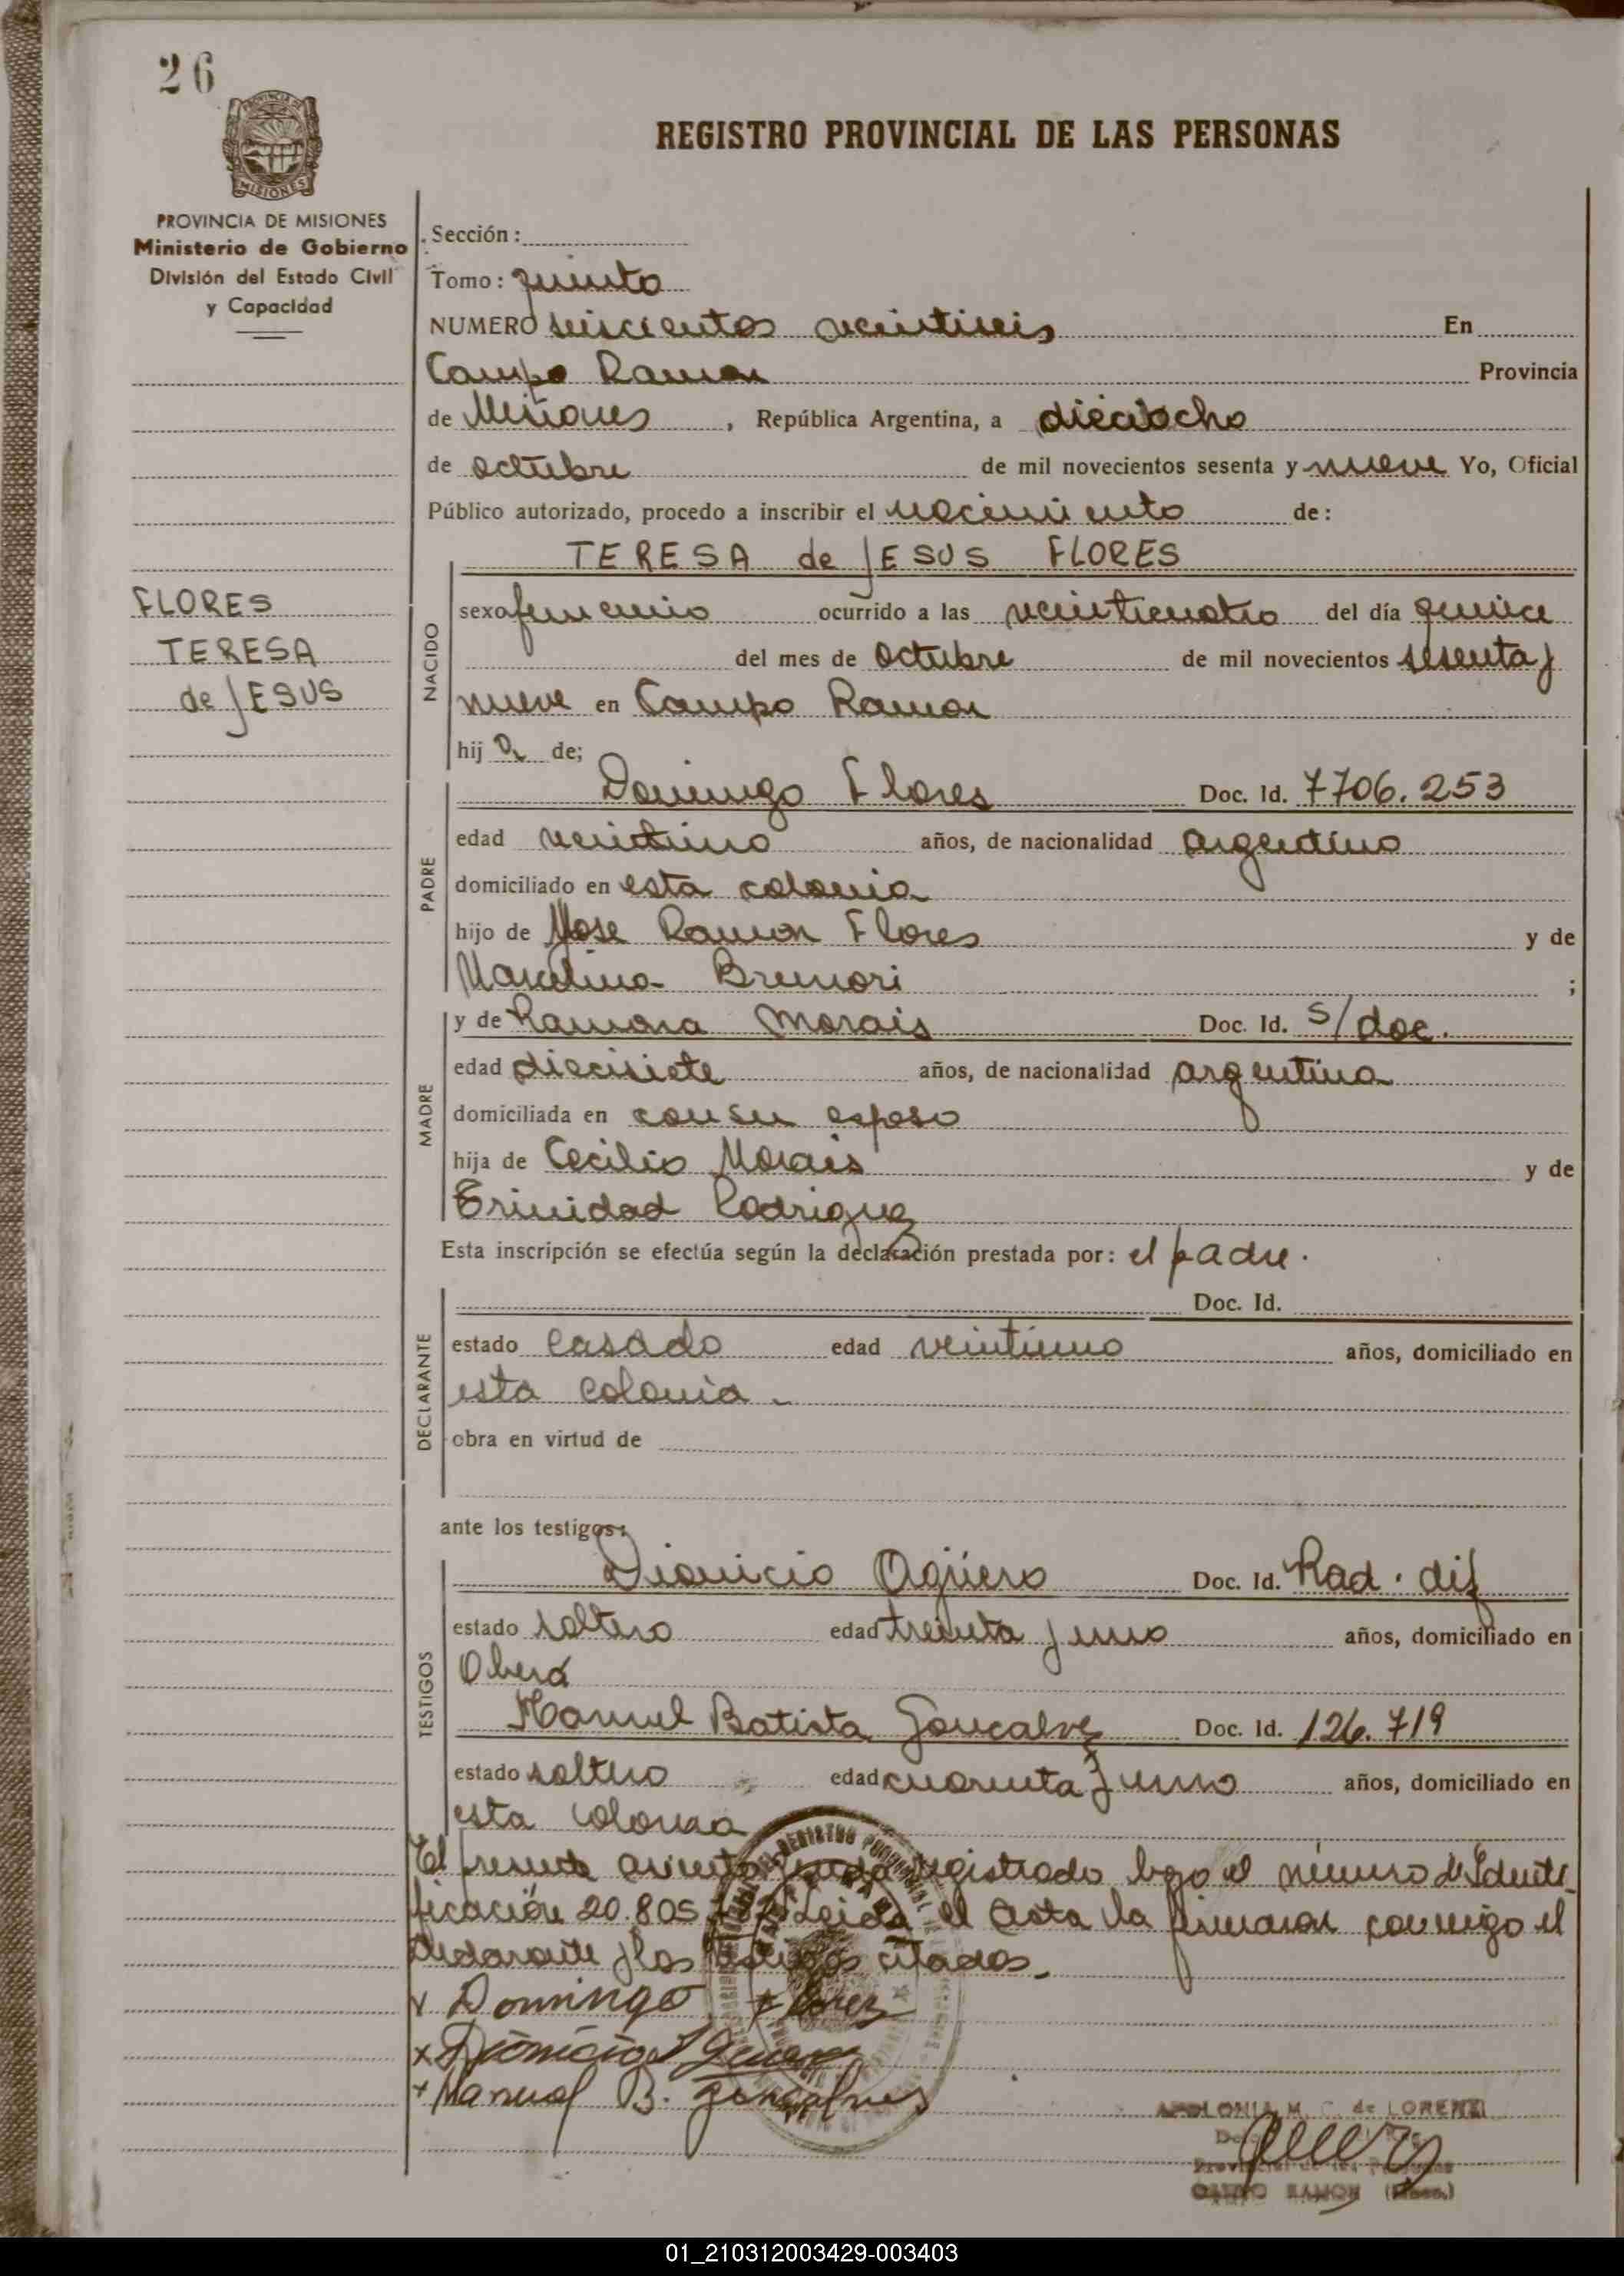 26
MISIONES
PROVINCIA DE MISIONES
Ministerio de Gobierno
División del Estado Civil
y Capacidad
REGISTRO PROVINCIAL DE LAS PERSONAS
Sección:
Tomo: quinto
NUMERO seiscientos veintiseis En
Campo Ramon Provincia
de Misiones, República Argentina, a dieciocho
de octubre de mil novecientos sesenta y nueve Yo, Oficial
Público autorizado, procedo a inscribir el nacimiento de:
TERESA de JESUS FLORES
FLORES
TERESA
de JESUS
NACIDO
sexo femenino ocurrido a las veinticuatro del día quince
del mes de octubre de mil novecientos sesenta y
nueve en Campo Ramon
hij a de;
PADRE
Domingo Flores Doc. Id. 7706.253
edad veintiuno años, de nacionalidad argentino
domiciliado en esta colonia
hijo de Jose Ramon Flores y de
Marcelina ;
MADRE
y de Ramona Morais Doc. Id. s/doc.
edad diecisiete años, de nacionalidad argentina
domiciliada en con su esposo
hija de Cecilio Morais y de
Trinidad Rodriguez
Esta inscripción se efectúa según la declaración prestada por: el padre.
DECLARANTE
Doc. Id.
estado casado edad veintiuno años, domiciliado en
esta colonia.
obra en virtud de
ante los testigos:
TESTIGOS
Dionicio Agüero Doc. Id. Rad. dif
estado soltero edad treinta y uno años, domiciliado en
Oberá
Manuel Batista Goncalvez Doc. Id. 126.719
estado soltero edad cuarenta y uno años, domiciliado en
esta colonia
El presente asiento queda registrado bajo el número de Identi
ficación 20.805. Leida el acta la firmaron conmigo el
declarante y los testigos citados.
x Domingo Florez
x Dionicio Aguero
+ Manuel B. Goncalves
APOLONIA M. C. de LORENZI
Provincial de las Personas
CAMPO RAMON (Mnes.)
01_210312003429-003403